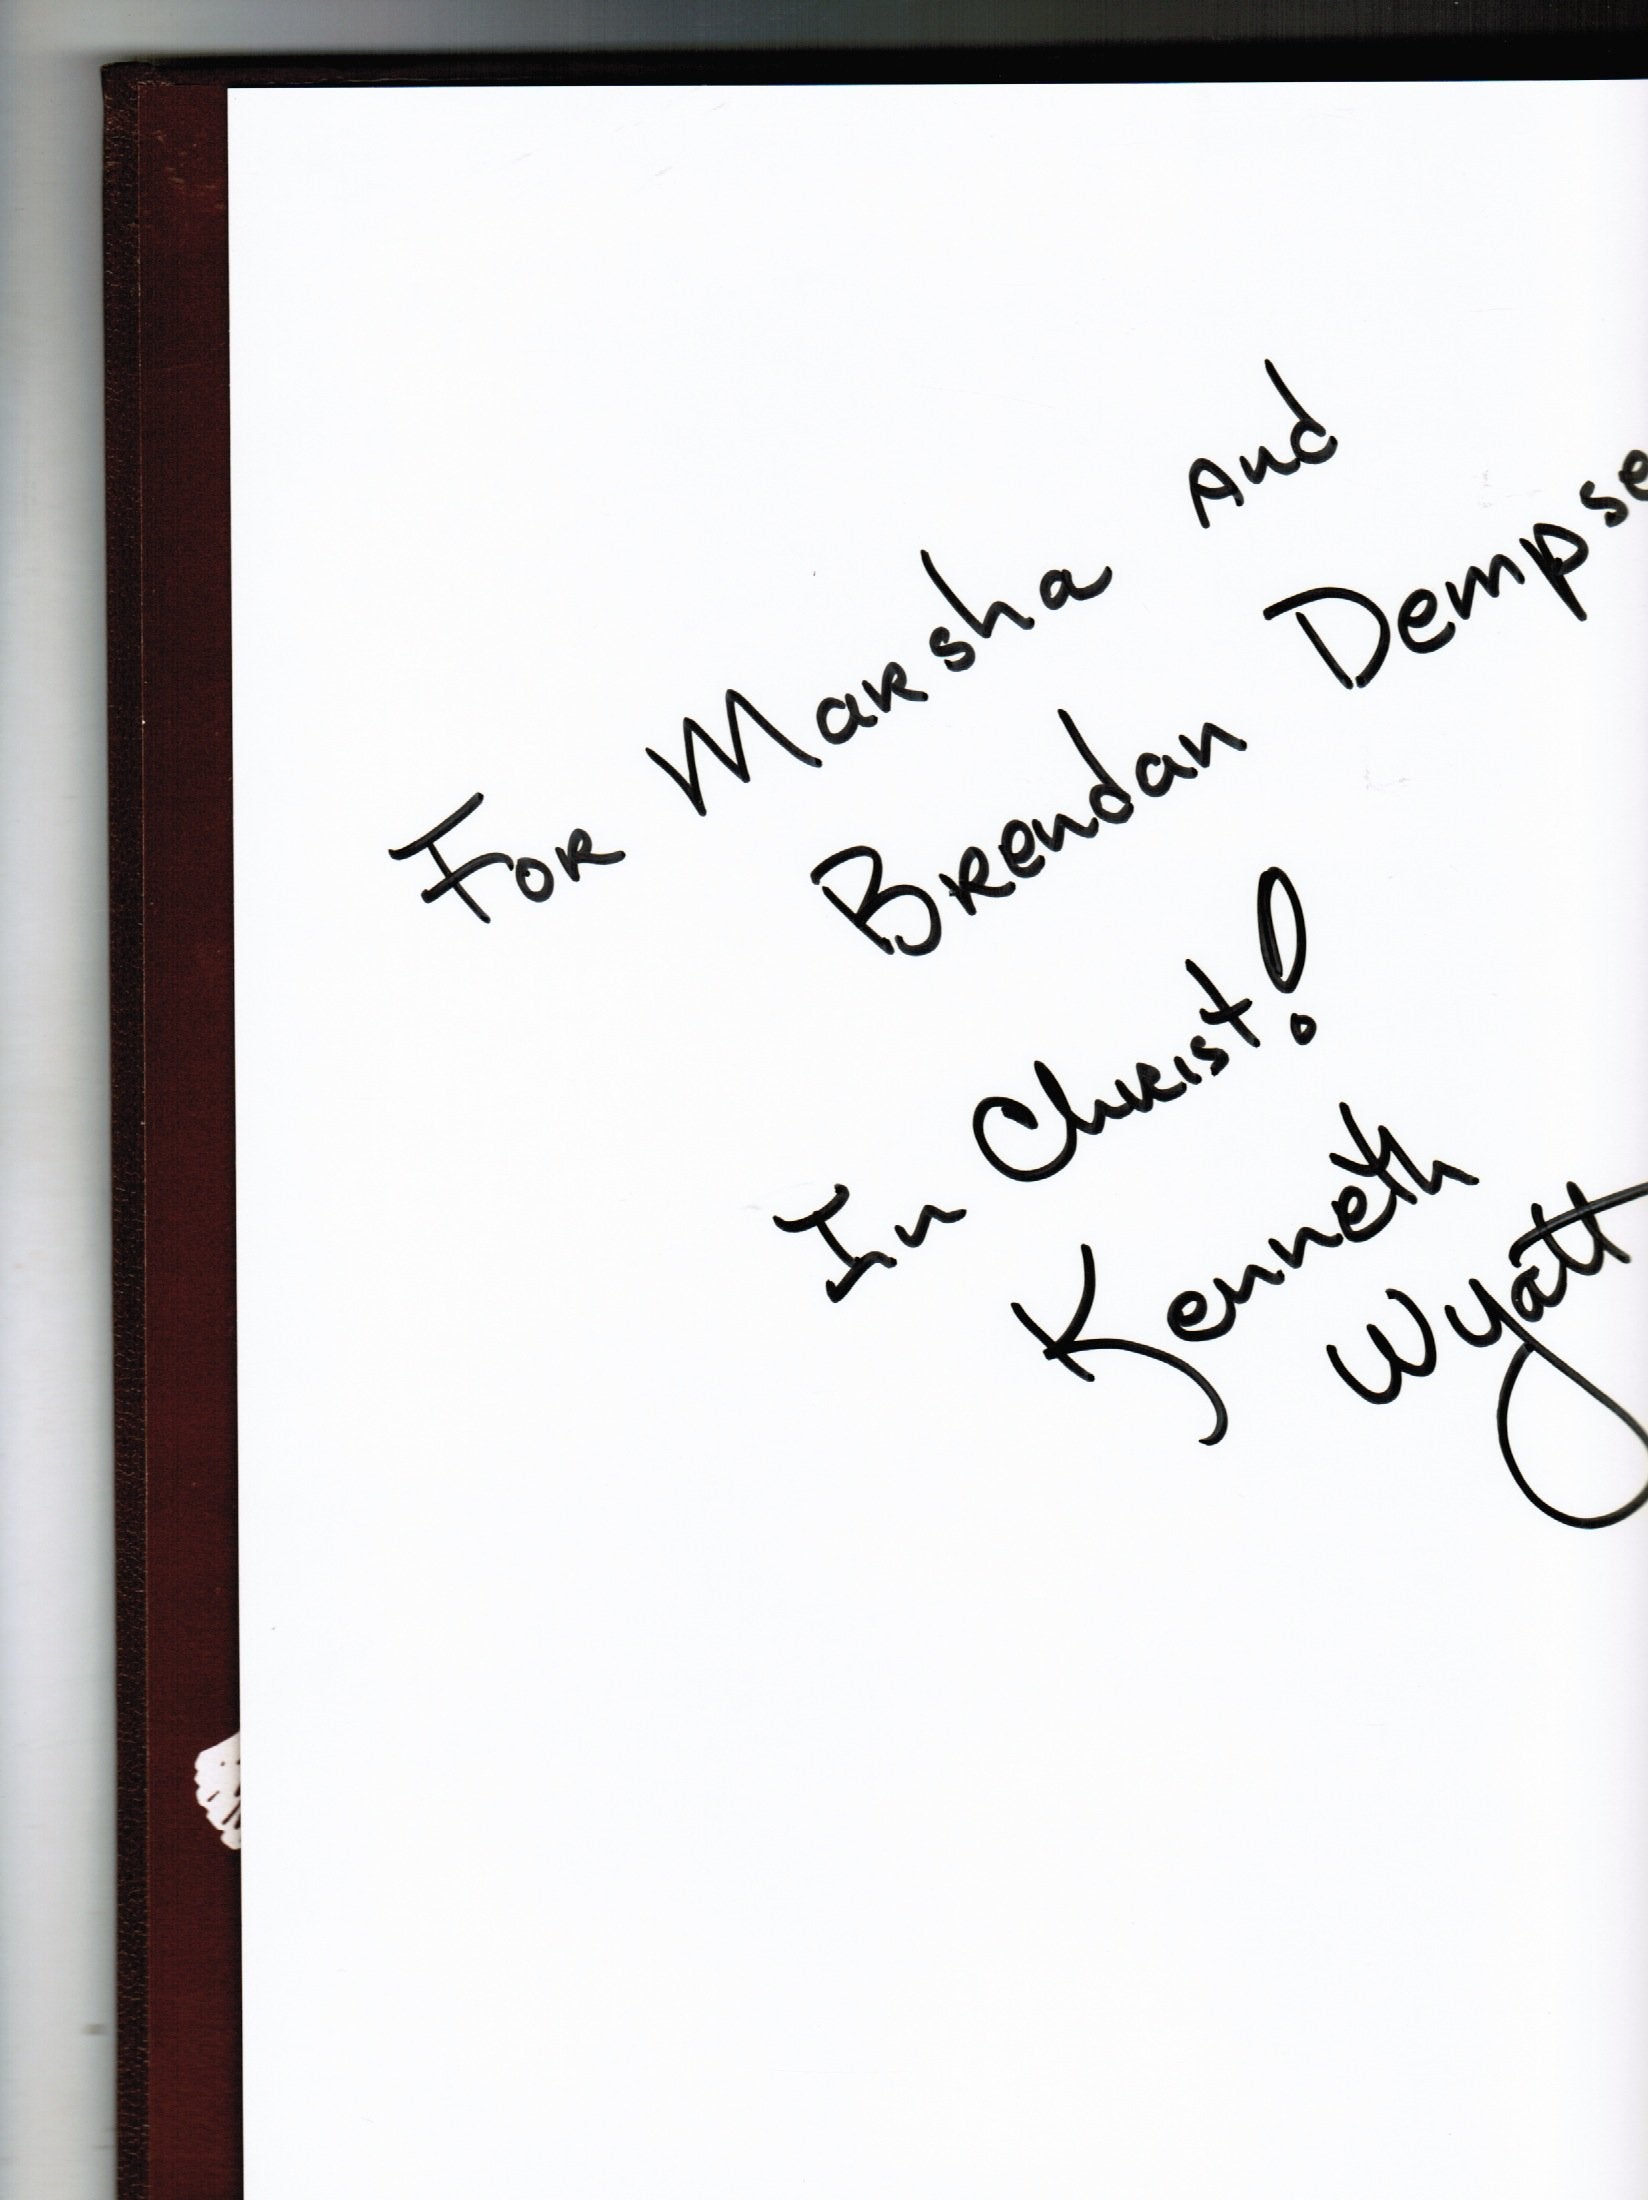 For Marsha And
Brendan Dempse
In Christ!
Kenneth
Wyatt